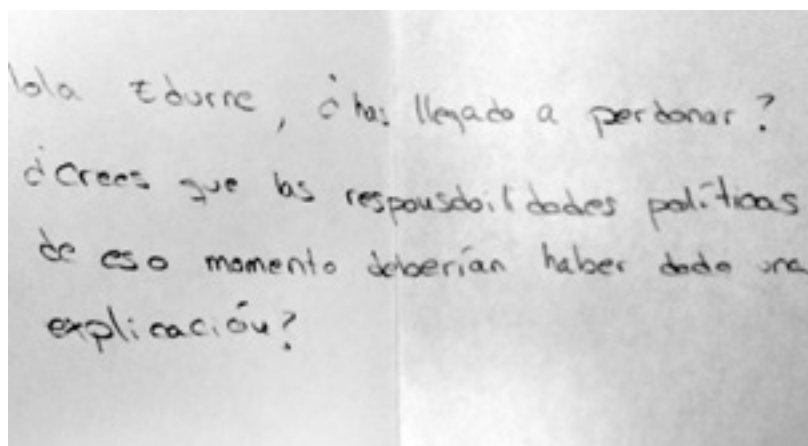 lola Edurne, ¿has llegado a perdonar?
¿Crees que las responsabilidades políticas
de eso momento deberían haber dado una
explicación?